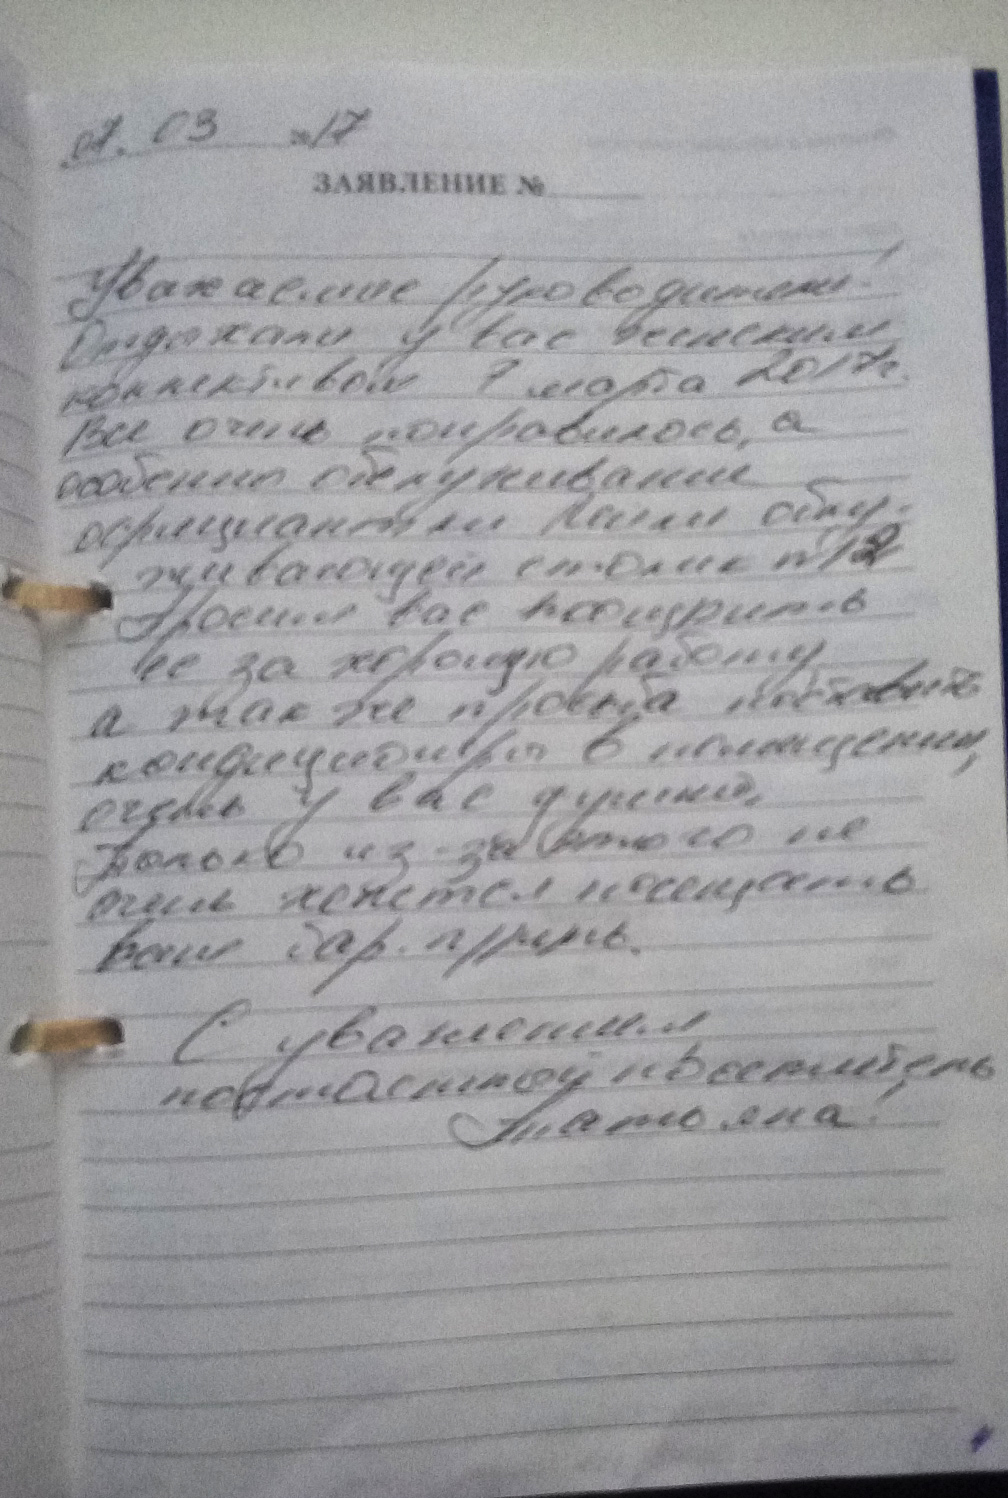 07. 03 17
ЗАЯВЛЕНИЕ №
Уважаемые руководители!
Отдыхали у вас женским
коллективом 7 марта 2017г.
Все очень понравилось, а
особенно обслуживание
официантки обслу-
живающей столик №12
Просим вас поощрить
ее за хорошую работу
а так же просьба поставить
кондиционеры в помещении,
очень у вас душно,
Только из-за этого не
очень хочется посещать
ваш бар.
С уважением
постоянный посетитель
Татьяна!